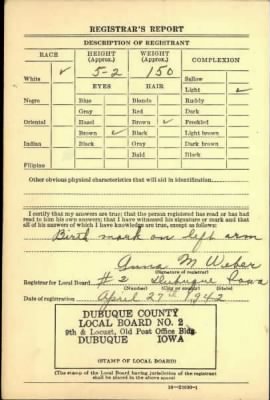 REGISTRAR'S REPORT
DESCRIPTION OF REGISTRANT
RACE HEIGHT (Approx.) WEIGHT (Approx.) COMPLEXION
White ✓ 5-2 150 Sallow
EYES HAIR Light ✓
Negro Blue Blonde Ruddy
Gray Red Dark
Oriental Hazel Brown ✓ Freckled
Brown ✓ Black Light brown
Indian Black Gray Dark brown
Bald Black
Filipino
Other obvious physical characteristics that will aid in identification
I certify that my answers are true; that the person registered has read or has had
read to him his own answers; that I have witnessed his signature or mark and that
all of his answers of which I have knowledge are true, except as follows:
Birth mark on left arm
Anna M Weber
(Signature of registrar)
Registrar for Local Board #2 Dubuque Iowa
(Number) (City or county)
Date of registration April 27th 1942
DUBUQUE COUNTY
LOCAL BOARD NO. 2
9th & Locust, Old Post Office Bldg.
DUBUQUE IOWA
(STAMP OF LOCAL BOARD)
(The stamp of the Local Board having jurisdiction of the registrant
shall be placed in the above space)
16-21630-1